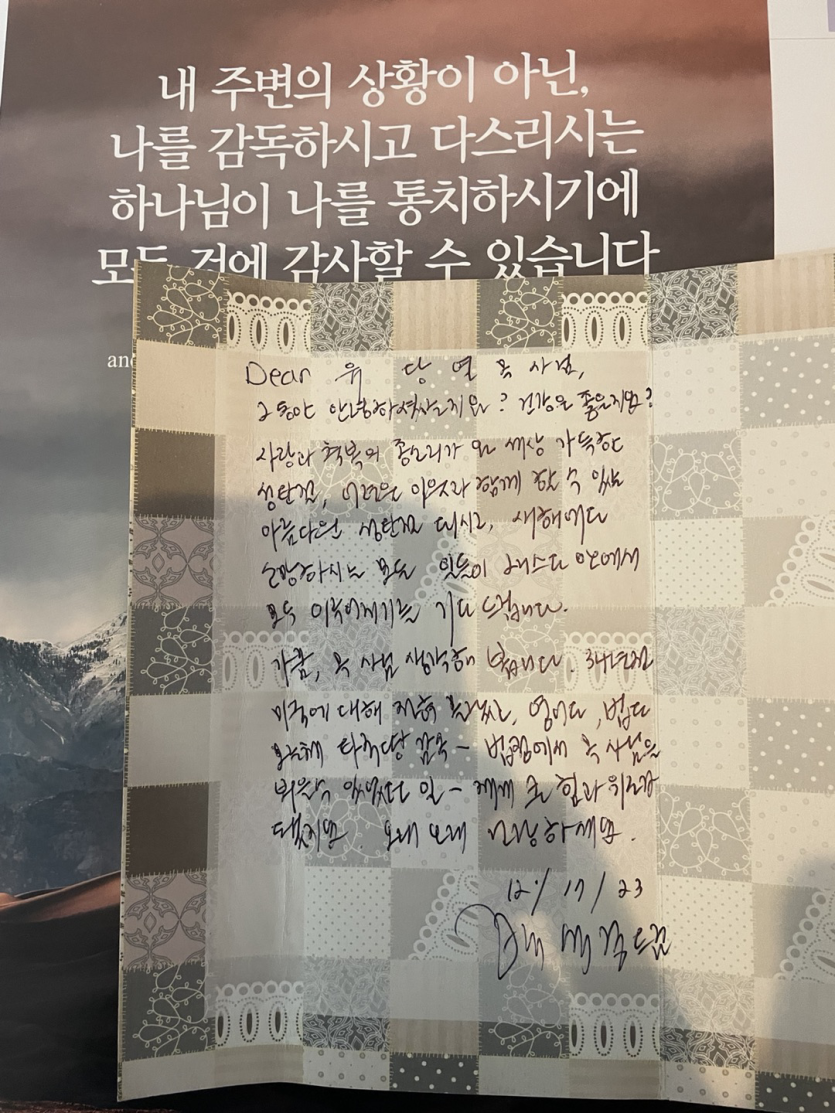 내 주변의 상황이 아닌,
나를 감독하시고 다스리시는
하나님이 나를 통치하시기에
모든 것에 감사할 수 있습니다
an
Dear 유 당 열 목 사님,
그동안 안녕하셨는지요? 건강은 좋은지요?
사랑과 축복의 종소리가 온 세상 가득한
성탄절, 어려운 이웃과 함께 할 수 있는
아름다운 성탄절 되시고, 새해에는
소망하시는 모든 일들이 안에서
모두 이루어지기를 기도 드립니다.
가끔, 목 사님 생각해 봅니다. 34년전
미국에 대해 전혀 영어도, 법도
법정에서 목 사님을
뵈올 수 있었던 일 - 제게 큰 힘과 위로가
됐지요. 오래 오래 건강하세요.
12/ 17 / 23
드림